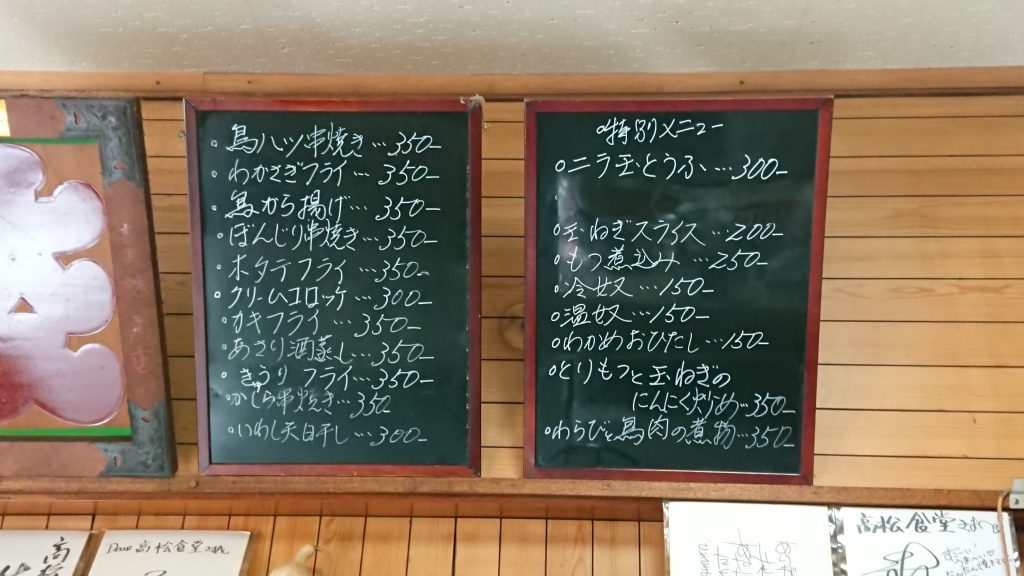 ・鳥ハツ串焼き…350-
・わかさぎフライ…350-
・鳥から揚げ…350-
・ぼんじり串焼き…350-
・ホタテフライ…350-
・クリームコロッケ…300-
・カキフライ…350-
・あさり酒蒸し…350-
・きゅうりフライ…350-
・かしら串焼き…350
・いわし天日干し…300-
特別メニュー
ニラ玉とうふ…300-
玉ねぎスライス…200-
もつ煮込み…250-
冷奴…150-
温奴…150-
わかめおひたし…150-
とりもつと玉ねぎの
にんにく炒め…350-
わらびと鳥肉の煮物…350-
Dear 高松食堂さん
高松食堂さん